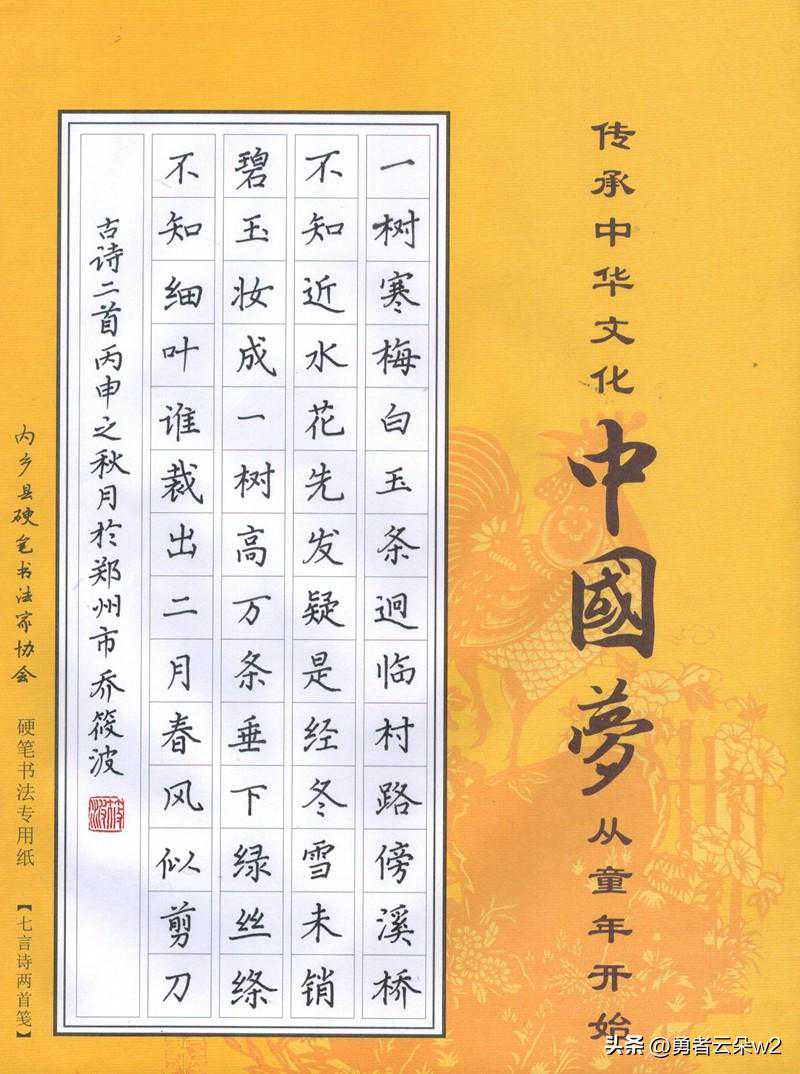 传承中华文化
中國夢
从童年开始
一树寒梅白玉条迥临村路傍溪桥
不知近水花先发疑是经冬雪未销
碧玉妆成一树高万条垂下绿丝绦
不知细叶谁裁出二月春风似剪刀
古诗二首丙申之秋月於郑州市乔筱波
内乡县硬笔书法家协会
硬笔书法专用纸
【七言诗两首笺】
头条 @勇者云朵w2